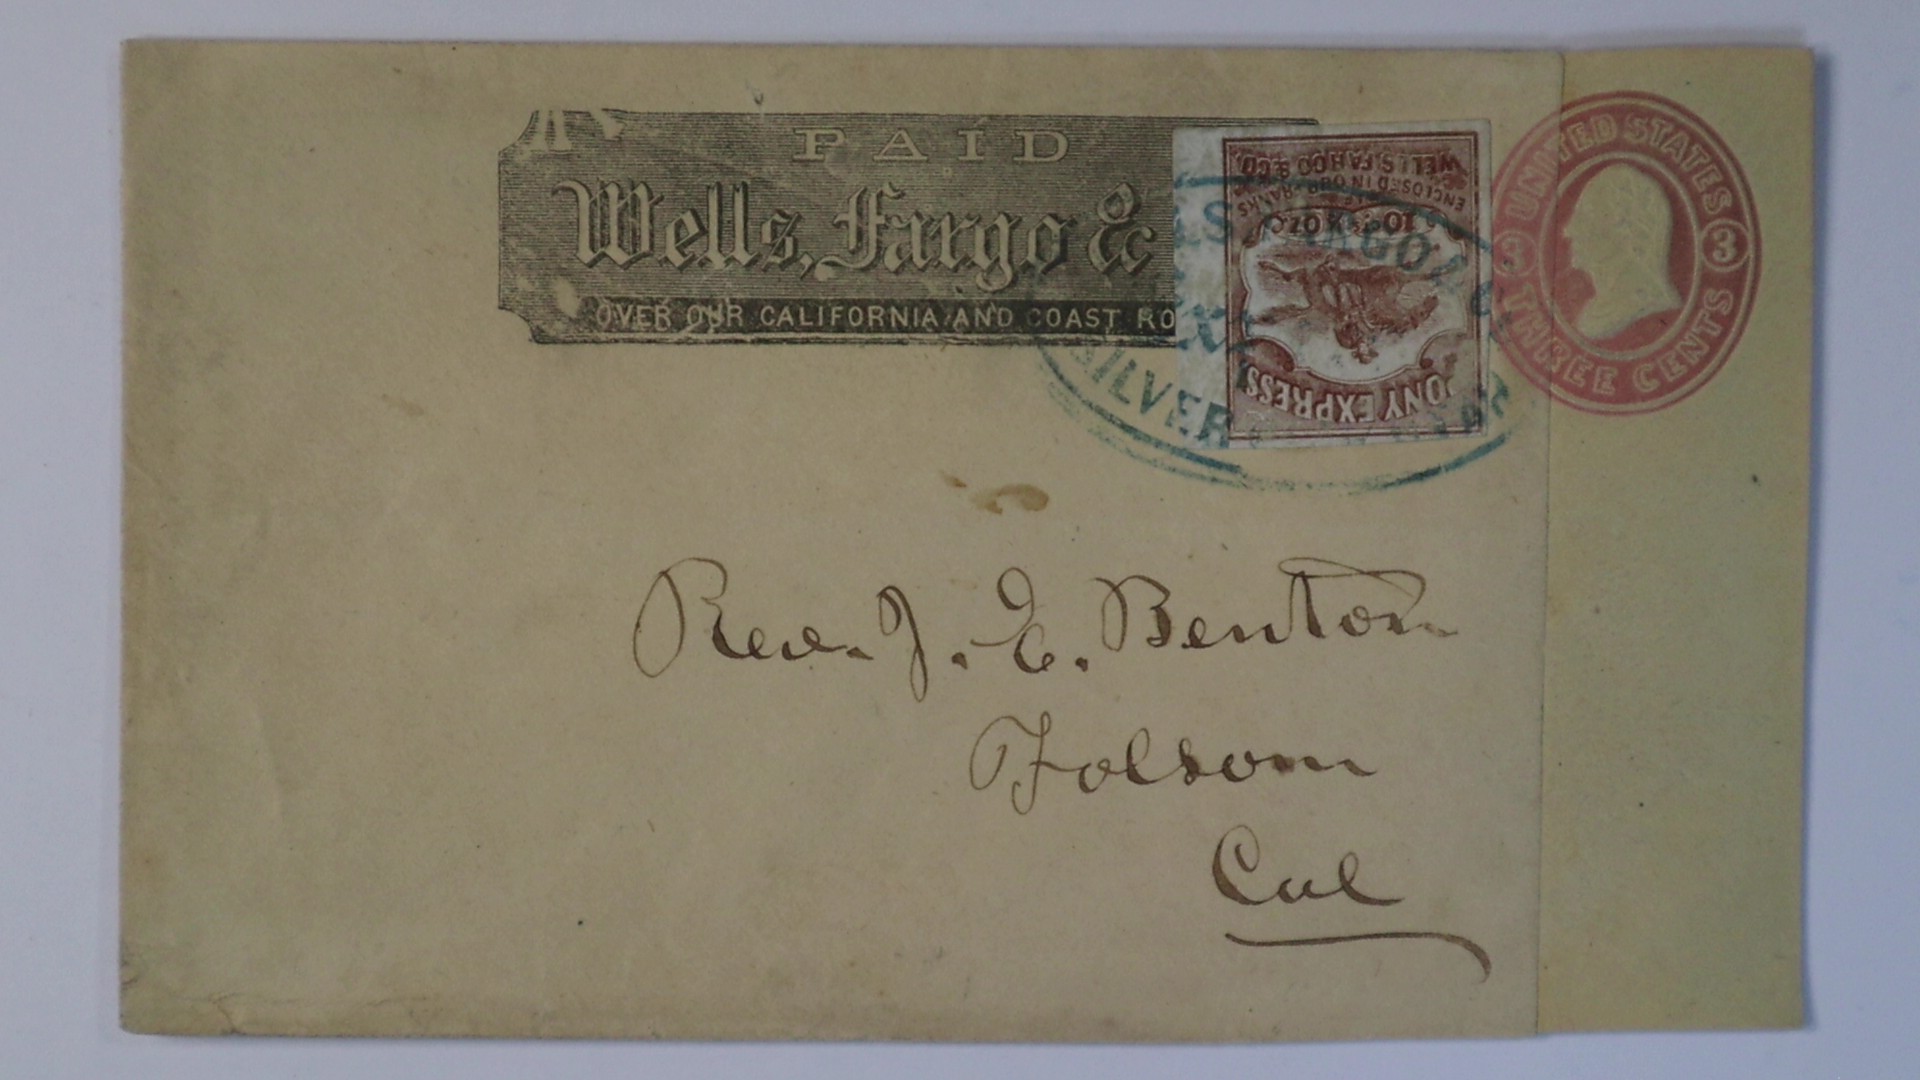 PAID
Wells, Fargo &
OVER OUR CALIFORNIA AND COAST RO
PONY EXPRESS
10¢ ½ OZ
ENCLOSED IN OUR FRANKS
WELLS, FARGO & CO.
SILVER
UNITED STATES
3 3
THREE CENTS
Rev. J. E. Benton
Folsom
Cal